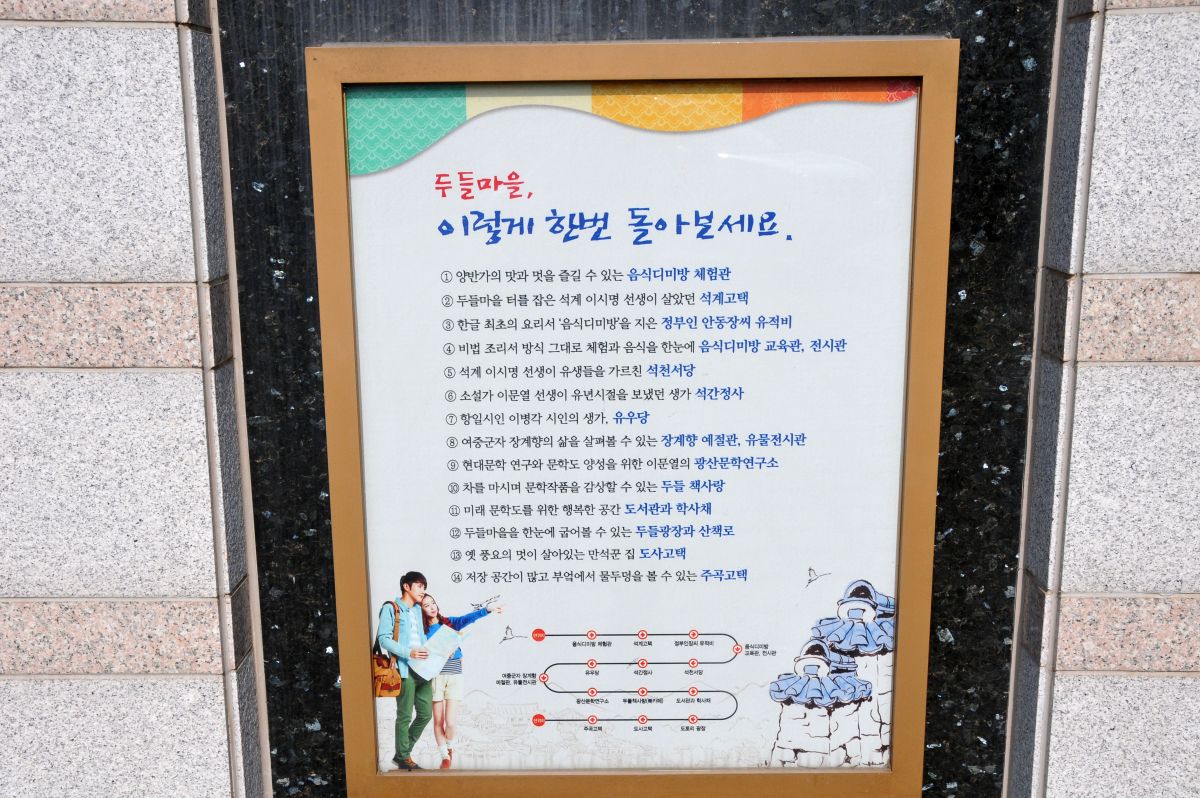 두들마을,
이렇게 한번 돌아보세요.
① 양반가의 맛과 멋을 즐길 수 있는 음식디미방 체험관
② 두들마을 터를 잡은 석계 이시명 선생이 살았던 석계고택
③ 한글 최초의 요리서 '음식디미방'을 지은 정부인 안동장씨 유적비
④ 비법 조리서 방식 그대로 체험과 음식을 한눈에 음식디미방 교육관, 전시관
⑤ 석계 이시명 선생이 유생들을 가르친 석천서당
⑥ 소설가 이문열 선생이 유년시절을 보냈던 생가 석간정사
⑦ 항일시인 이병각 시인의 생가, 유우당
⑧ 여중군자 장계향의 삶을 살펴볼 수 있는 장계향 예절관, 유물전시관
⑨ 현대문학 연구와 문학도 양성을 위한 이문열의 광산문학연구소
⑩ 차를 마시며 문학작품을 감상할 수 있는 두들 책사랑
⑪ 미래 문학도를 위한 행복한 공간 도서관과 학사채
⑫ 두들마을을 한눈에 굽어볼 수 있는 두들광장과 산책로
⑬ 옛 풍요의 멋이 살아있는 만석꾼 집 도사고택
⑭ 저장 공간이 많고 부엌에서 물두멍을 볼 수 있는 주곡고택
음식디미방 체험관 석계고택 정부인장씨 유적비
음식디미방
교육관, 전시관
유우당 석간정사 석천서당
여중군자 장계향
예절관, 유물전시관
광산문학연구소 두들책사랑(북카페) 도서관과 학사채
주곡고택 도사고택 도토리 광장